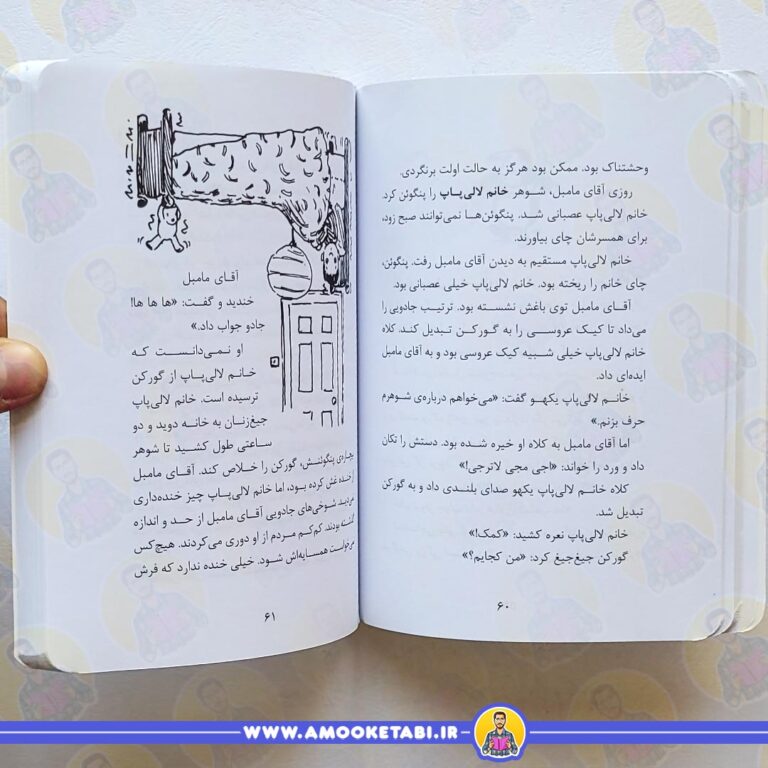 وحشتناک بود. ممکن بود هرگز به حالت اولت برنگردی.
روزی آقای مامبل، شوهر خانم لالی‌پاپ را پنگوئن کرد.
خانم لالی‌پاپ عصبانی شد. پنگوئن‌ها نمی‌توانند صبح زود،
برای همسرشان چای بیاورند.
خانم لالی‌پاپ مستقیم به دیدن آقای مامبل رفت. پنگوئن،
چای خانم را ریخته بود. خانم لالی‌پاپ خیلی عصبانی بود.
آقای مامبل توی باغش نشسته بود. ترتیب جادویی را
می‌داد تا کیک عروسی را به گورکن تبدیل کند. کلاه
خانم لالی‌پاپ خیلی شبیه کیک عروسی بود و به آقای مامبل
ایده‌ای داد.
خانم لالی‌پاپ یکهو گفت: «می‌خواهم درباره‌ی شوهرم
حرف بزنم.»
اما آقای مامبل به کلاه او خیره شده بود. دستش را تکان
داد و ورد را خواند: «اجی مجی لاترجی!»
کلاه خانم لالی‌پاپ یکهو صدای بلندی داد و به گورکن
تبدیل شد.
خانم لالی‌پاپ نعره کشید: «کمک!»
گورکن جیغ‌جیغ کرد: «من کجایم؟»
۶۰
آقای مامبل
خندید و گفت: «ها ها ها!
جادو جواب داد.»
او نمی‌دانست که
خانم لالی‌پاپ از گورکن
ترسیده است. خانم لالی‌پاپ
جیغ‌زنان به خانه دوید و دو
ساعتی طول کشید تا شوهر
بیچاره‌ی پنگوئنش، گورکن را خلاص کند. آقای مامبل
از خنده غش کرده بود، اما خانم لالی‌پاپ چیز خنده‌داری
نمی‌دید. شوخی‌های جادویی آقای مامبل از حد و اندازه
گذشته بودند. کم‌کم مردم از او دوری می‌کردند. هیچ‌کس
نمی‌خواست همسایه‌اش شود. خیلی خنده ندارد که فرش
۶۱
WWW.AMOOKETABI.IR